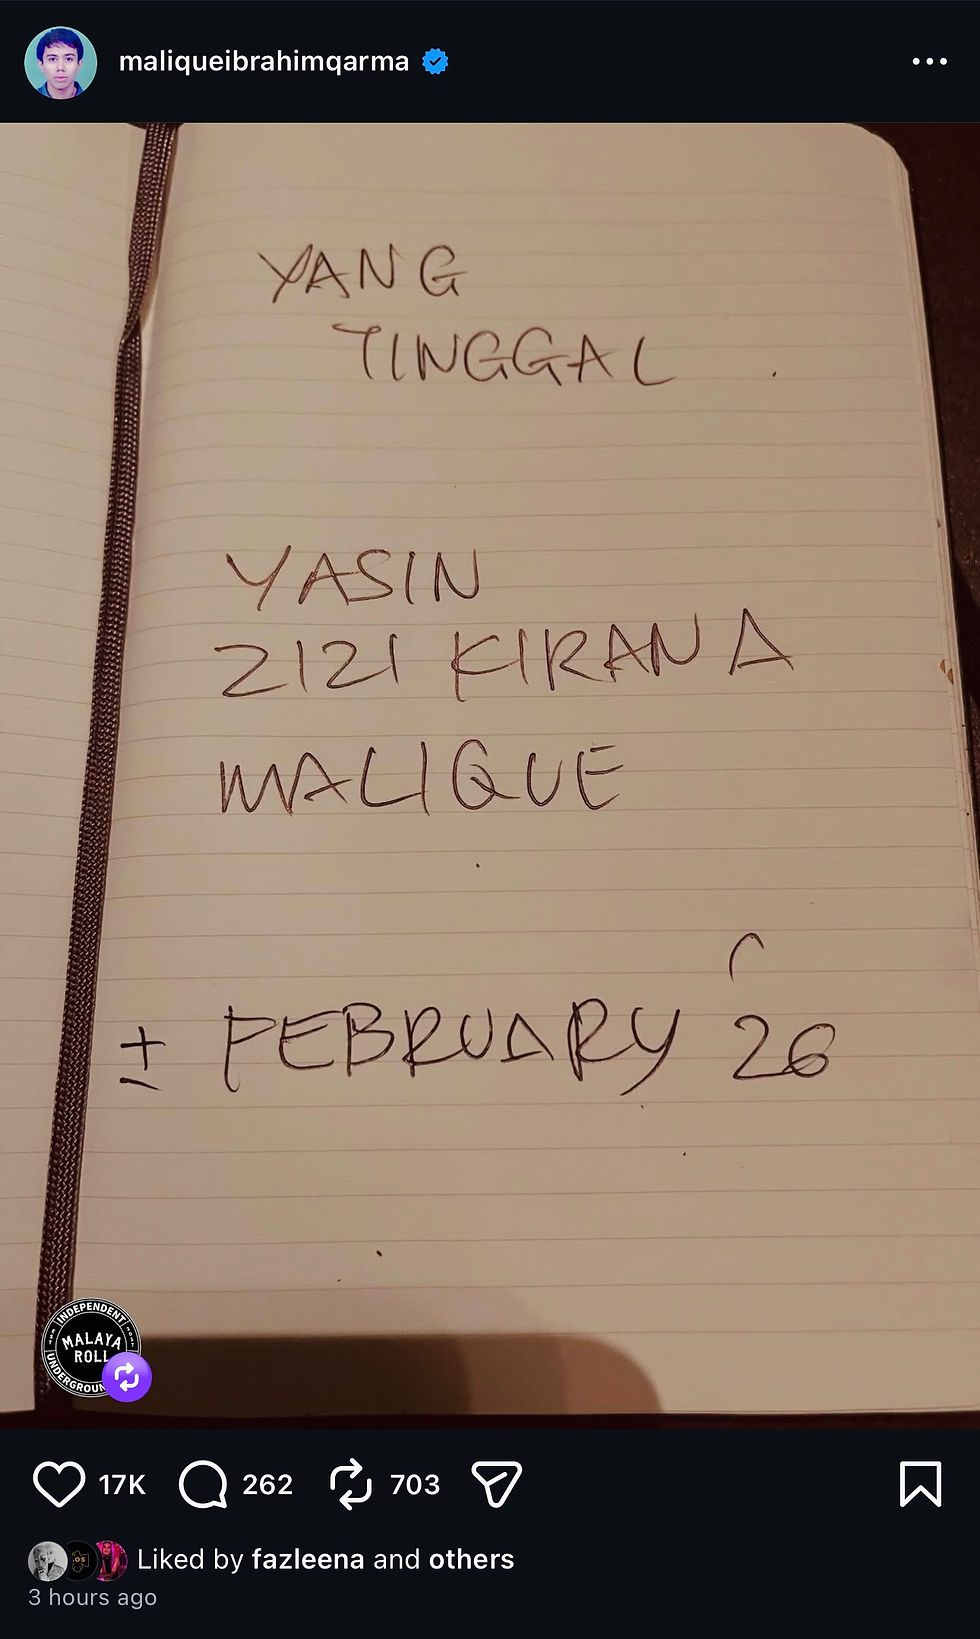 maliqueibrahimqarma
YANG
TINGGAL
YASIN
ZIZI KIRANA
MALIQUE
± FEBRUARY 26
INDEPENDENT
MALAYA
ROLL
17K 262 703
Liked by fazleena and others
3 hours ago